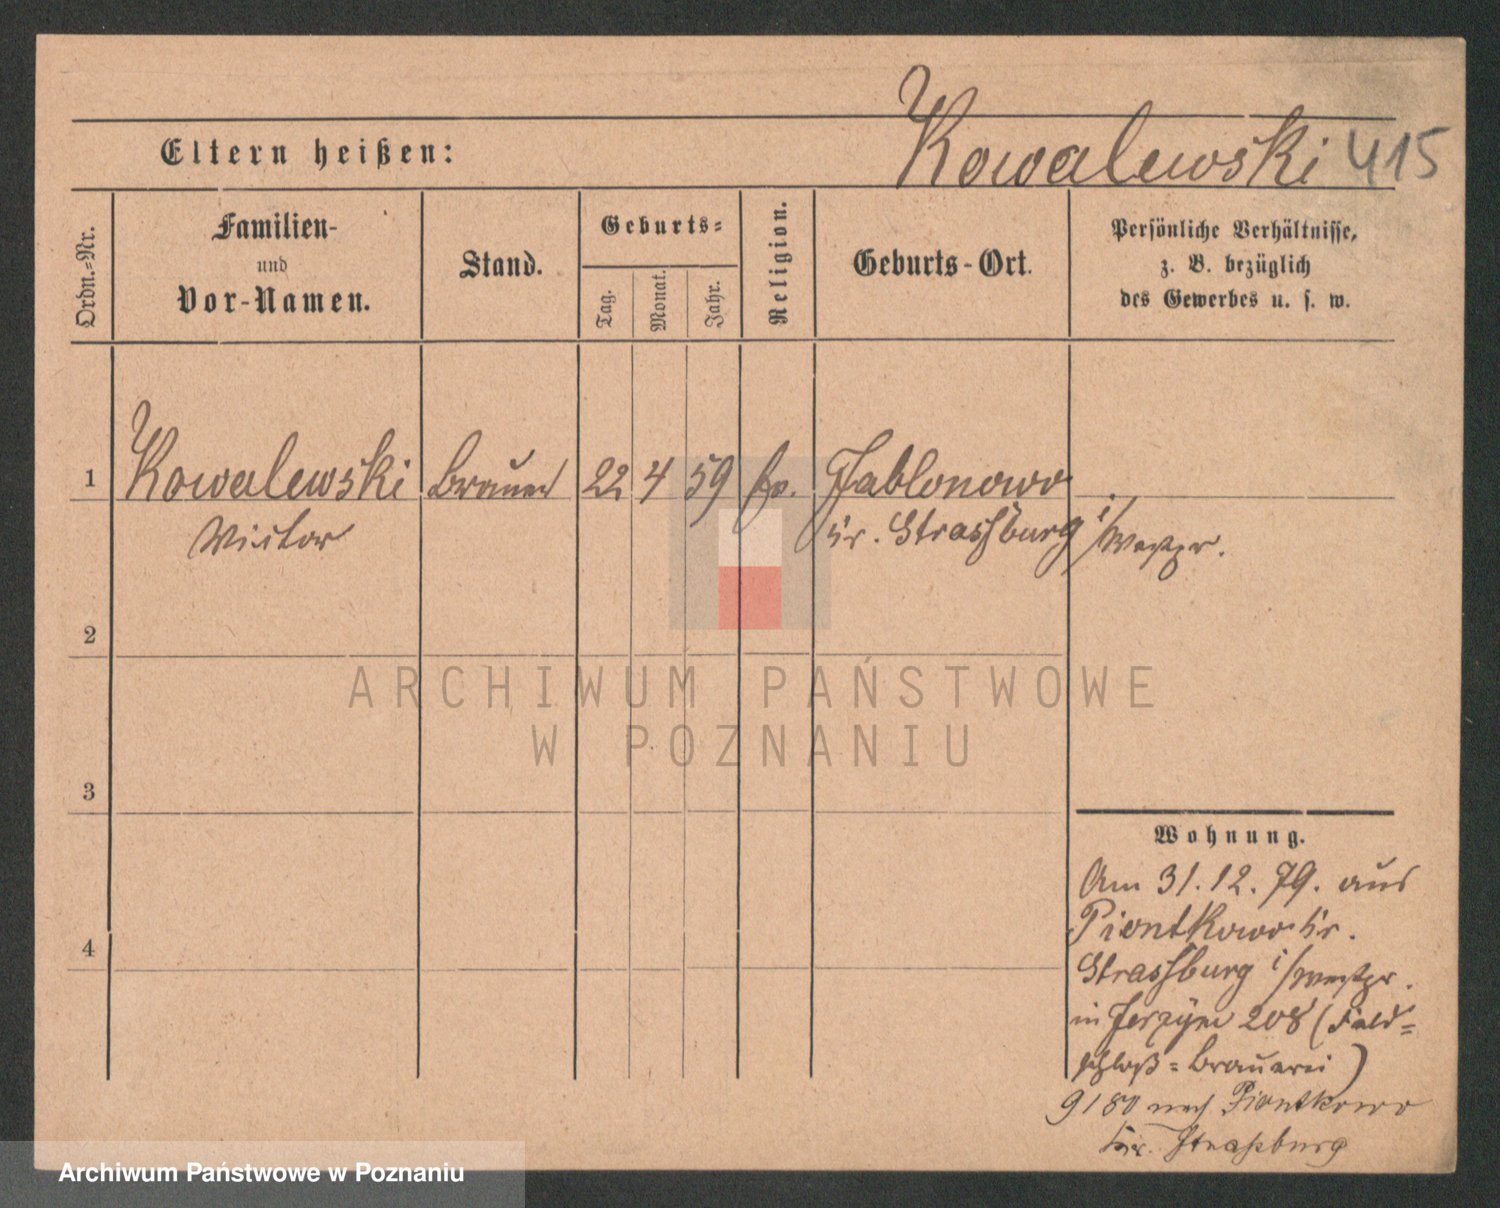 Kowalewski 415
Eltern heißen:
Ordn.-Nr.
Familien-
und
Vor-Namen.
Stand.
Geburts-
Tag.
Monat.
Jahr.
Religion.
Geburts-Ort.
Persönliche Verhältnisse,
z. B. bezüglich
des Gewerbes u. s. w.
1 Kowalewski Brauer 22 4 59 Jablonowo
Victor Kr. Strassburg i/Westpr.
2
3
4
Wohnung.
Am 31.12.79. aus
Piontkowo Kr.
Strassburg i/Westpr.
in Jerzyce 208 (Feld-
schloß-Brauerei)
9/80 nach Piontkowo
Kr. Straßburg
ARCHIWUM PAŃSTWOWE
W POZNANIU
Archiwum Państwowe w Poznaniu